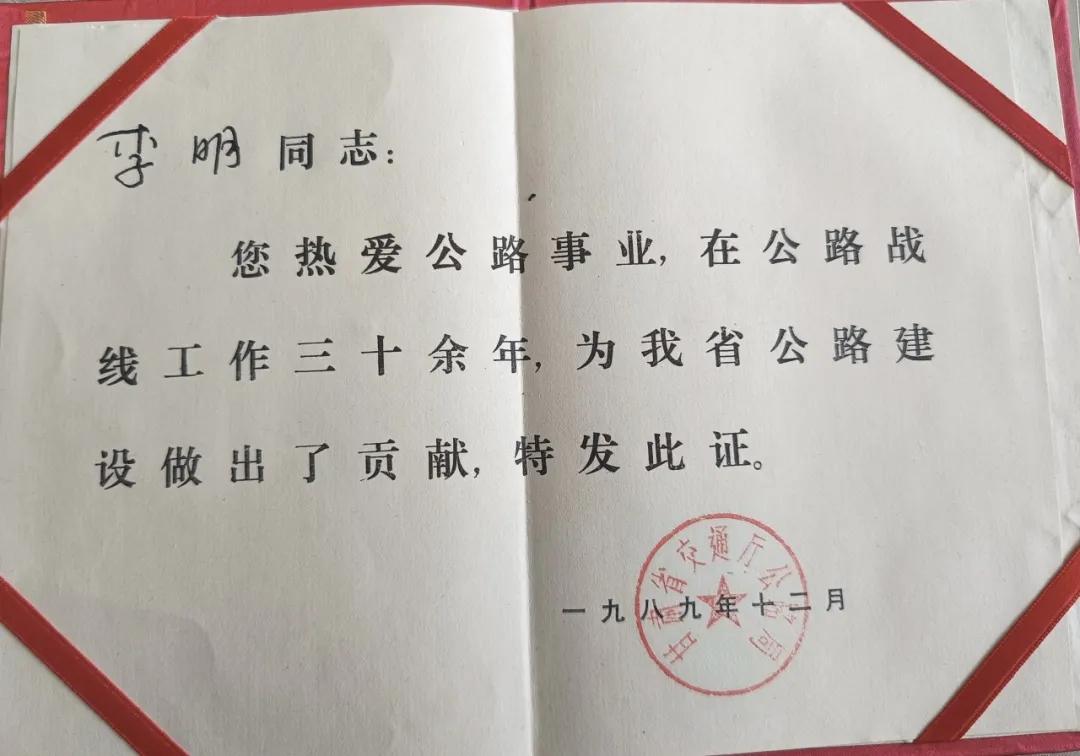 李明同志：
您热爱公路事业，在公路战
线工作三十余年，为我省公路建
设做出了贡献，特发此证。
甘肃省交通厅公路局
一九八九年十二月